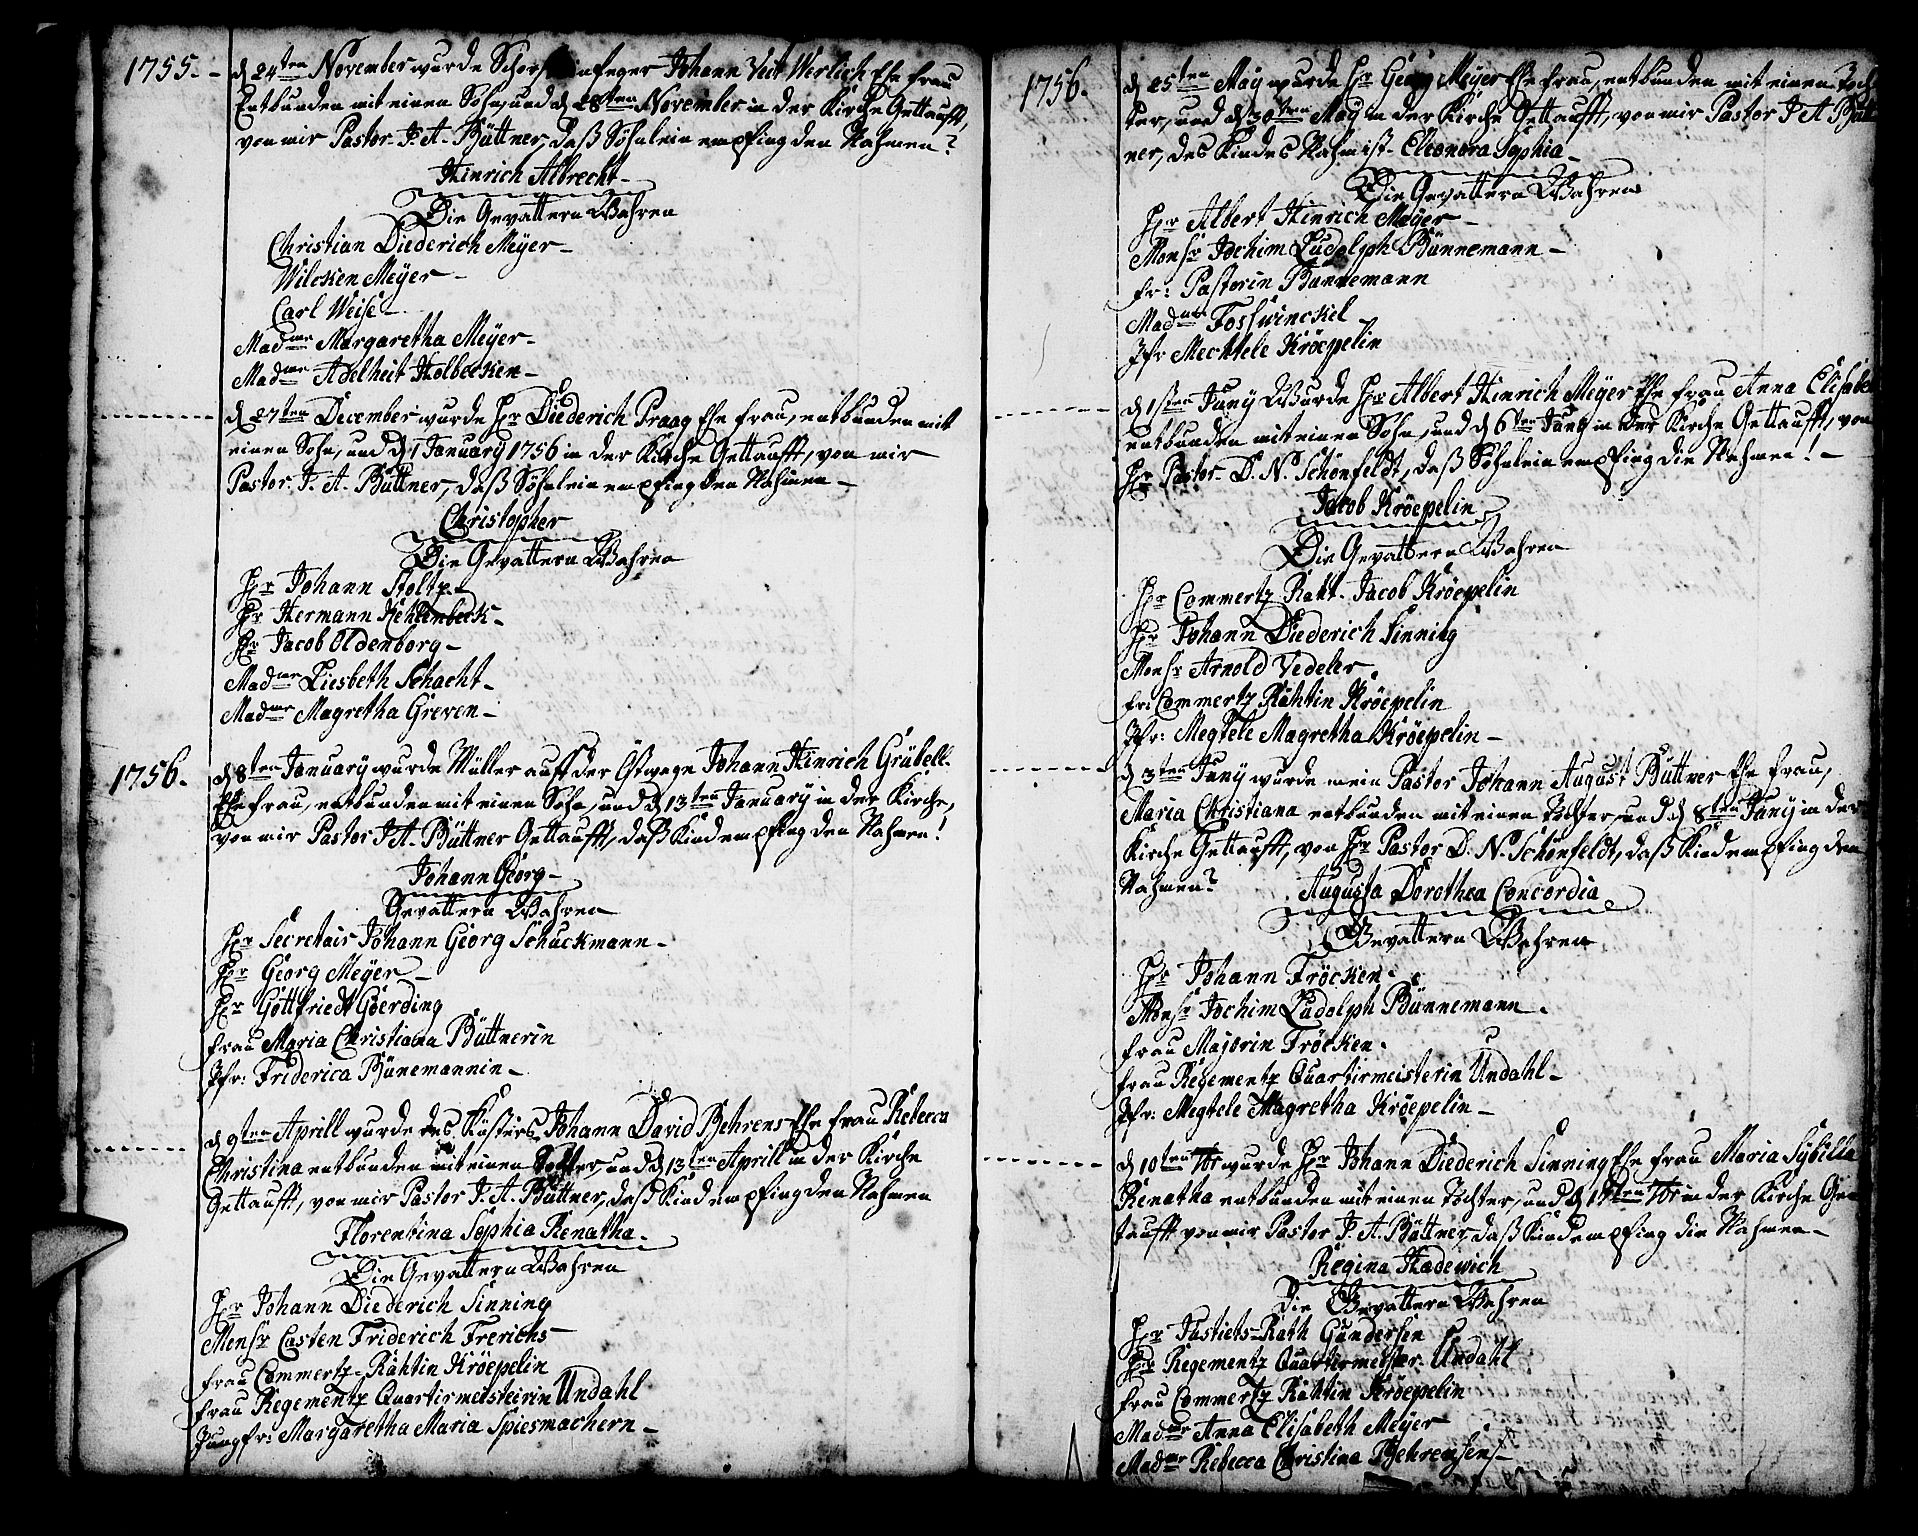 1755. - d 24ten November wurde Schorsteinfeger Johann Veit Werlich Ehe frau
Entbunden mit einen Sohn, und d 28ten November in der Kirche Gettaufft,
von mir Pastor J. A. Büttner, daß Söhnlein empfing den Nahmen?
Hinrich Albrecht
Die Gevattern Wahren
Christian Diederich Meÿer
Wilcken Meÿer
Carl Weise
Madme Margaretha Meÿer
Madme Adelheit Holbecken
d 27ten December wurde Hr Diederich Praag Ehe frau, entbunden mit
einen Sohn, und d 1 January 1756 in der Kirche Gettaufft, von mir
Pastor J. A. Büttner, daß Söhnlein empfing den Nahmen
Christopher
Die Gevattern Wahren
Hr Johann Stoltz
Hr Hermann Kehlenbeck
Hr Jacob Oldenborg
Madme Liesbeth Schacht
Madme Magretha Greven
1756. d 8ten January wurde Müller auff der Ostwage Johann Hinrich Grübell.
Ehe frau, entbunden mit einen Sohn, und d 13ten January in der Kirche,
von mir Pastor J A. Büttner Gettaufft, daß Kind empfing den Nahmen!
Johann Georg
Gevattern Wahren
Hr Secretair Johann Georg Schuckmann
Hr Georg Meÿer
Hr Gottfriedt Goerding
frau Maria Christiana Büttnerin
Jfr: Friderica Bünemannin
d 9ten Aprill wurde des Küsters Johann David Behrens Ehe frau Rebecca
Christina entbunden mit einen Tochter, und d 13ten Aprill in der Kirche
Gettaufft, von mir Pastor J. A. Büttner, daß Kind empfing den Nahmen
Florentina Sophia Renatha
Die Gevattern Wahren
Hr Johann Diederich Sinning
Monsr Casten Friderich Frerichs
frau Commertz-Rähtin Kröepelin
frau Regementz Quartirmeisterin Undahl
Jungfr: Margaretha Maria Spiesmachern
1756. d 25ten May wurde Hr Georg Meÿer Ehe frau, entbunden mit einen Toch
ter, und d 30ten May in der Kirche Gettaufft, von mir Pastor J A Bütt
ner, des Kindes Nahm ist Eleonora Sophia
Die Gevattern Wahren
Hr Albert Hinrich Meÿer
Monsr Jochim Ludolph Bünnemann
fr: Pastorin Bünnemann
Madme Fosswinckel
Jfr Mechtele Kröepelin
d 1sten Juny Wurde Hr Albert Hinrich Meÿer Ehe frau Anna Elisabe
entbunden mit einen Sohn, und d 6ten Juny in der Kirche Gettaufft, von
Hr Pastor D. N. Schönfeldt, daß Söhnlein empfing die Nahmen!
Jacob Kröepelin
Die Gevattern Wahren
Hr Commertz Raht Jacob Kröepelin
Hr Johann Diederich Sinning
Monsr Arnold Vedeler.
fr: Commertz Rähtin Kröepelin
Jfr: Megtele Magretha Kröepelin
d 3ten Juny wurde mein Pastor Johann August Büttner Ehe frau,
Maria Christiana entbunden mit einen Tochter, und d 8ten Juny in der
Kirche Gettaufft, von Hr Pastor D. N. Schönfeldt, daß Kind empfing den
Nahmen? Augusta Dorothea Concordia
Gevattern Wahren
Hr Johann Fröcken.
Monsr Jochim Ludolph Bünnemann.
frau Majorin Fröcken.
frau Regementz Quartirmeisterin Undahl
Jfr: Megtele Magretha Kröepelin
d 10ten wurde Hr Johann Diederich Sinning Ehe frau Maria Sybilla
Renatha entbunden mit einen Tochter, und d in der Kirche Get
taufft von mir Pastor J. A. Büttner, daß Kind empfing die Nahmen
Regina Hadewich
Die Gevattern Wahren
Hr Justiets-Rath Gundersen
Hr Regementz Quartirmeister Undahl
frau Commertz Rähtin Kröepelin
Madme Anna Elisabeth Meÿer
Madme Rebecca Christina Behrensens